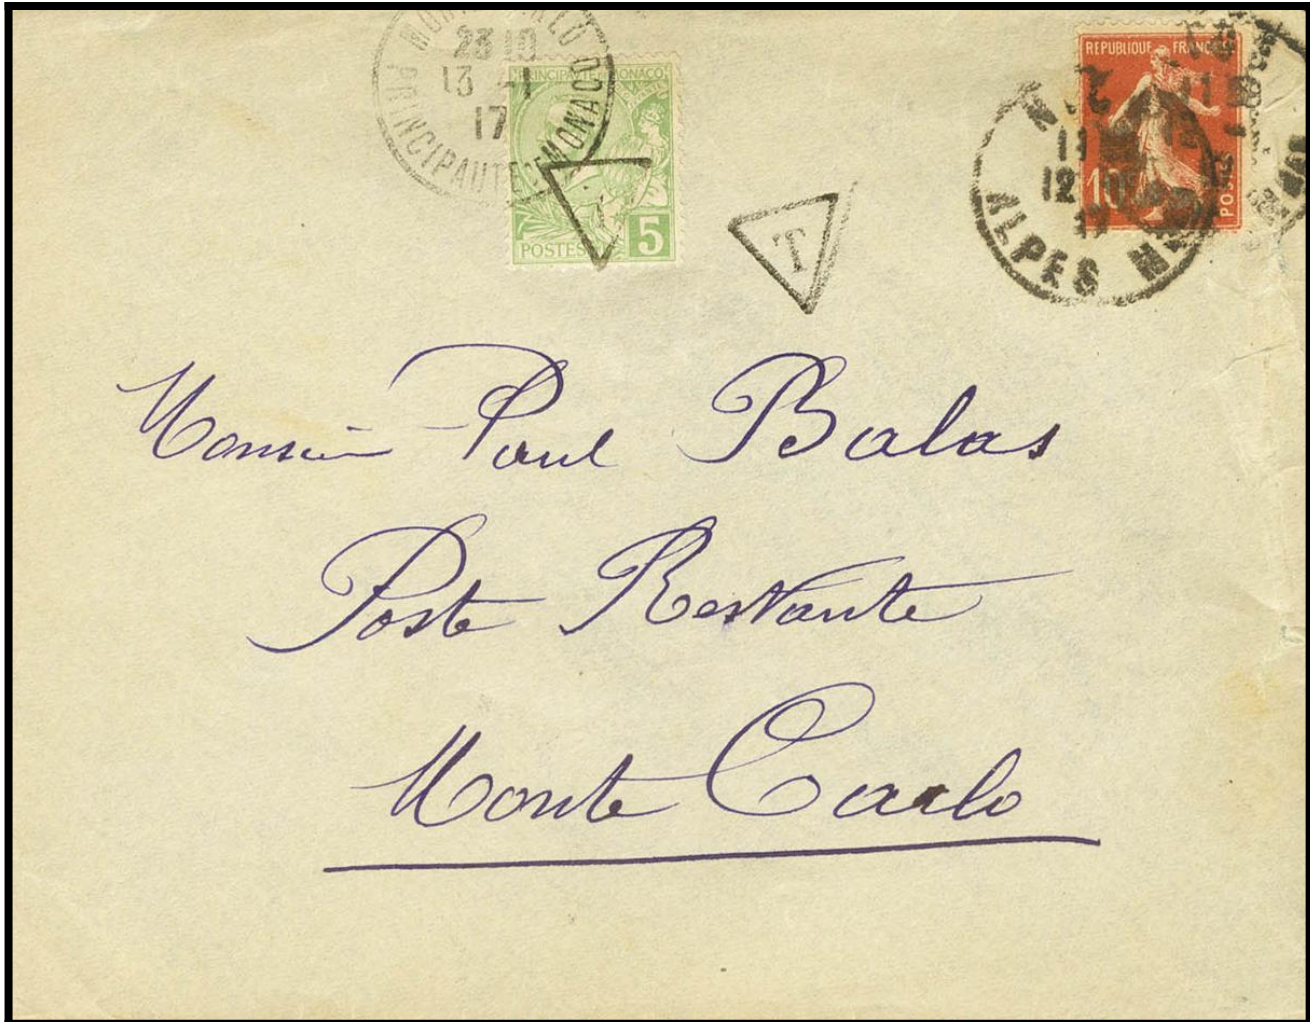 MONTE-CARLO
PRINCIPAUTE DE MONACO
23 10
13 -1
17
PRINCIPAUTE DE MONACO
POSTES
5
T
REPUBLIQUE FRANÇAISE
10
POSTES
NICE
11
12
17
ALPES
Monsieur Paul Balas
Poste Restante
Monte Carlo